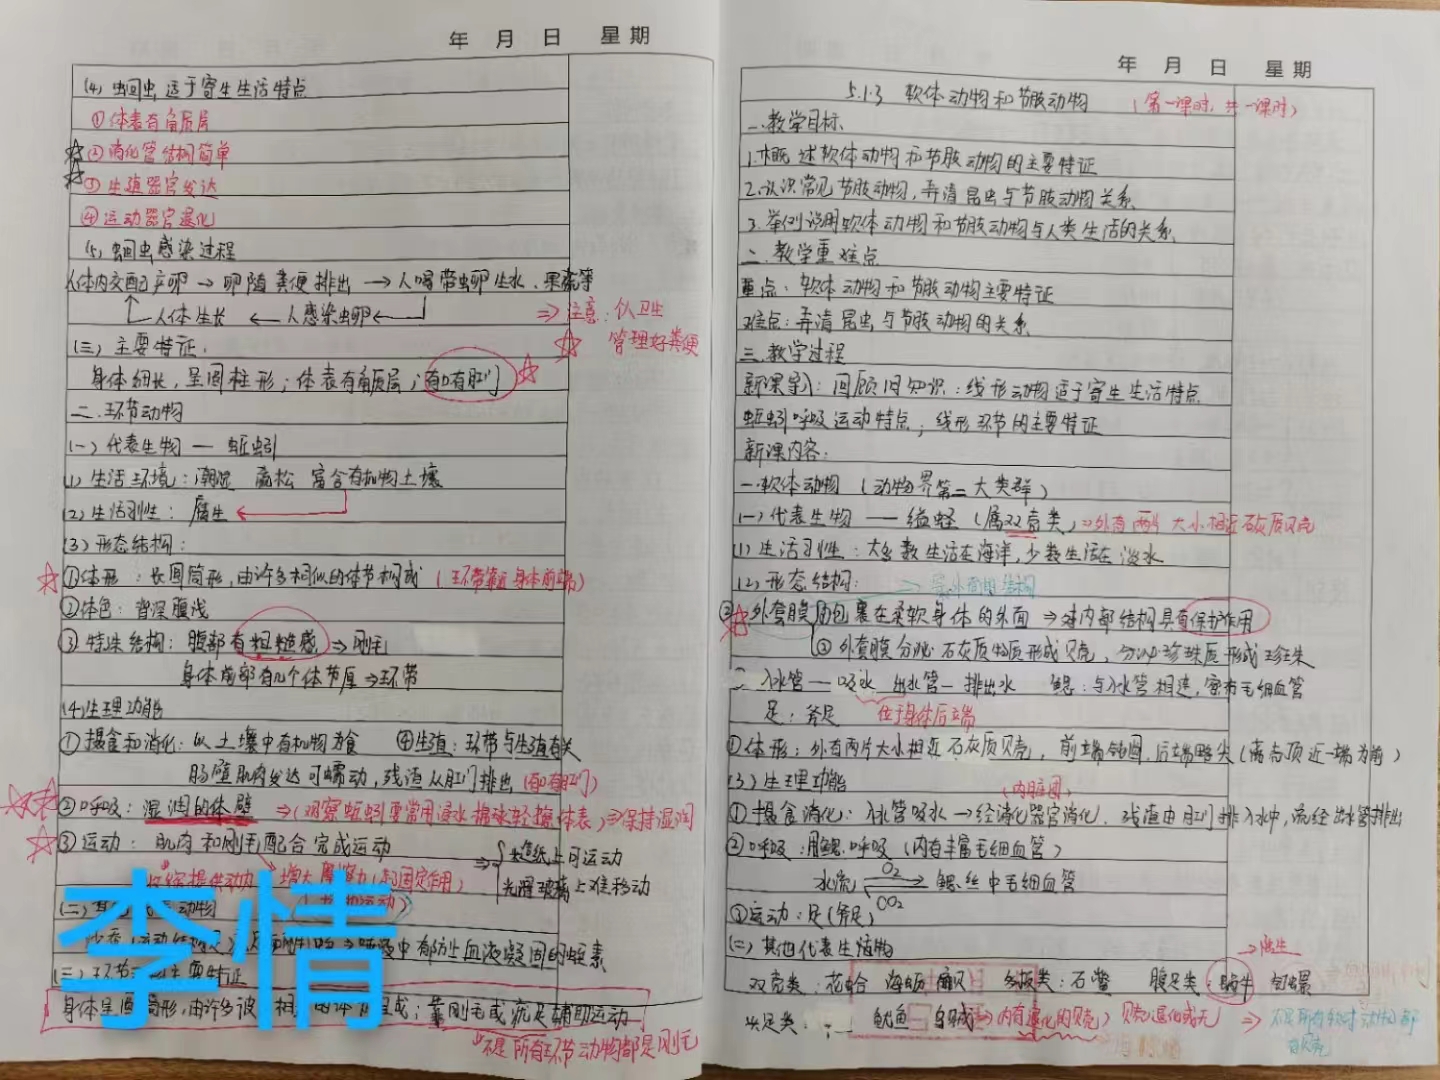 年 月 日 星期
(4) 蛔虫适于寄生生活特点
①体表有角质层
②消化管结构简单
③生殖器官发达
④运动器官退化
(5) 蛔虫感染过程
人体内交配产卵 → 卵随粪便排出 → 人喝带虫卵生水、果蔬等
人体生长 ← 人感染虫卵 ←
⇒ 注意：饮卫生
管理好粪便
(三) 主要特征：
身体细长，呈圆柱形；体表有角质层；有口有肛门
二.环节动物
(一) 代表生物 — 蚯蚓
(1) 生活环境：潮湿 疏松 富含有机物土壤
(2) 生活习性：腐生
(3) 形态结构：
①体形：长圆筒形，由许多相似的体节构成（环带靠近身体前端）
②体色：背深腹浅
③特殊结构：腹部有粗糙感 ⇒ 刚毛
身体前部有几个体节厚 ⇒ 环带
(4) 生理功能
①摄食和消化：以土壤中有机物为食 ④生殖：环带与生殖有关
肠壁肌肉发达可蠕动，残渣从肛门排出（有口有肛门）
②呼吸：湿润的体壁 ⇒（观察蚯蚓要常用浸水棉球轻擦体表）⇒保持湿润
③运动：肌肉和刚毛配合完成运动 ⇒ 粗糙纸上可运动
提供动力 增大摩擦力（和固定作用） 光滑玻璃上难移动
(二) 动物
⇒ 唾液中有防止血液凝固的蛭素
(三) 环节 主要特征
身体呈圆筒形，由许多彼 相 体 成；靠刚毛或疣足辅助运动
不是所有环节动物都是刚毛
李情
年 月 日 星期
5.1.3 软体动物和节肢动物 （第一课时，共一课时）
一.教学目标
1.概述软体动物和节肢动物的主要特征
2.认识常见节肢动物，弄清昆虫与节肢动物关系
3.举例说明软体动物和节肢动物与人类生活的关系
二.教学重难点
重点：软体动物和节肢动物主要特征
难点：弄清昆虫与节肢动物的关系
三.教学过程
新课导入：回顾旧知识：线形动物适于寄生生活特点
蚯蚓呼吸运动特点；线形环节的主要特征
新课内容：
一.软体动物（动物界第二大类群）
(一) 代表生物 — 缢蛏（属双壳类）⇒外有两片大小相近石灰质贝壳
(1) 生活习性：大多数生活在海洋，少数生活在淡水
(2) 形态结构：
外套膜 包裹在柔软身体的外面 ⇒ 对内部结构具有保护作用
外套膜分泌石灰质物质形成贝壳，分泌珍珠质形成珍珠
入水管 — 吸水 出水管 — 排出水 鳃：与入水管相连，密布毛细血管
足：斧足 位于身体后端
体形：外有两片大小相近石灰质贝壳，前端钝圆，后端略尖（离壳顶近一端为前）
(3) 生理功能 （内脏团）
①摄食消化：入水管吸水 → 经消化器官消化，残渣由肛门排入水中，流经出水管排出
②呼吸：用鳃呼吸（内有丰富毛细血管）
水流 O₂ CO₂ 鳃丝中毛细血管
③运动：足（斧足）
(二) 其他代表生物 → 陆生
双壳类：花蛤 海蛎 扇贝 多板类：石鳖 腹足类：蜗牛 田螺
头足类： 鱿鱼 乌贼⇒（内有退化的贝壳）贝壳退化或无 ⇒ 不是所有软体动物都
有贝壳